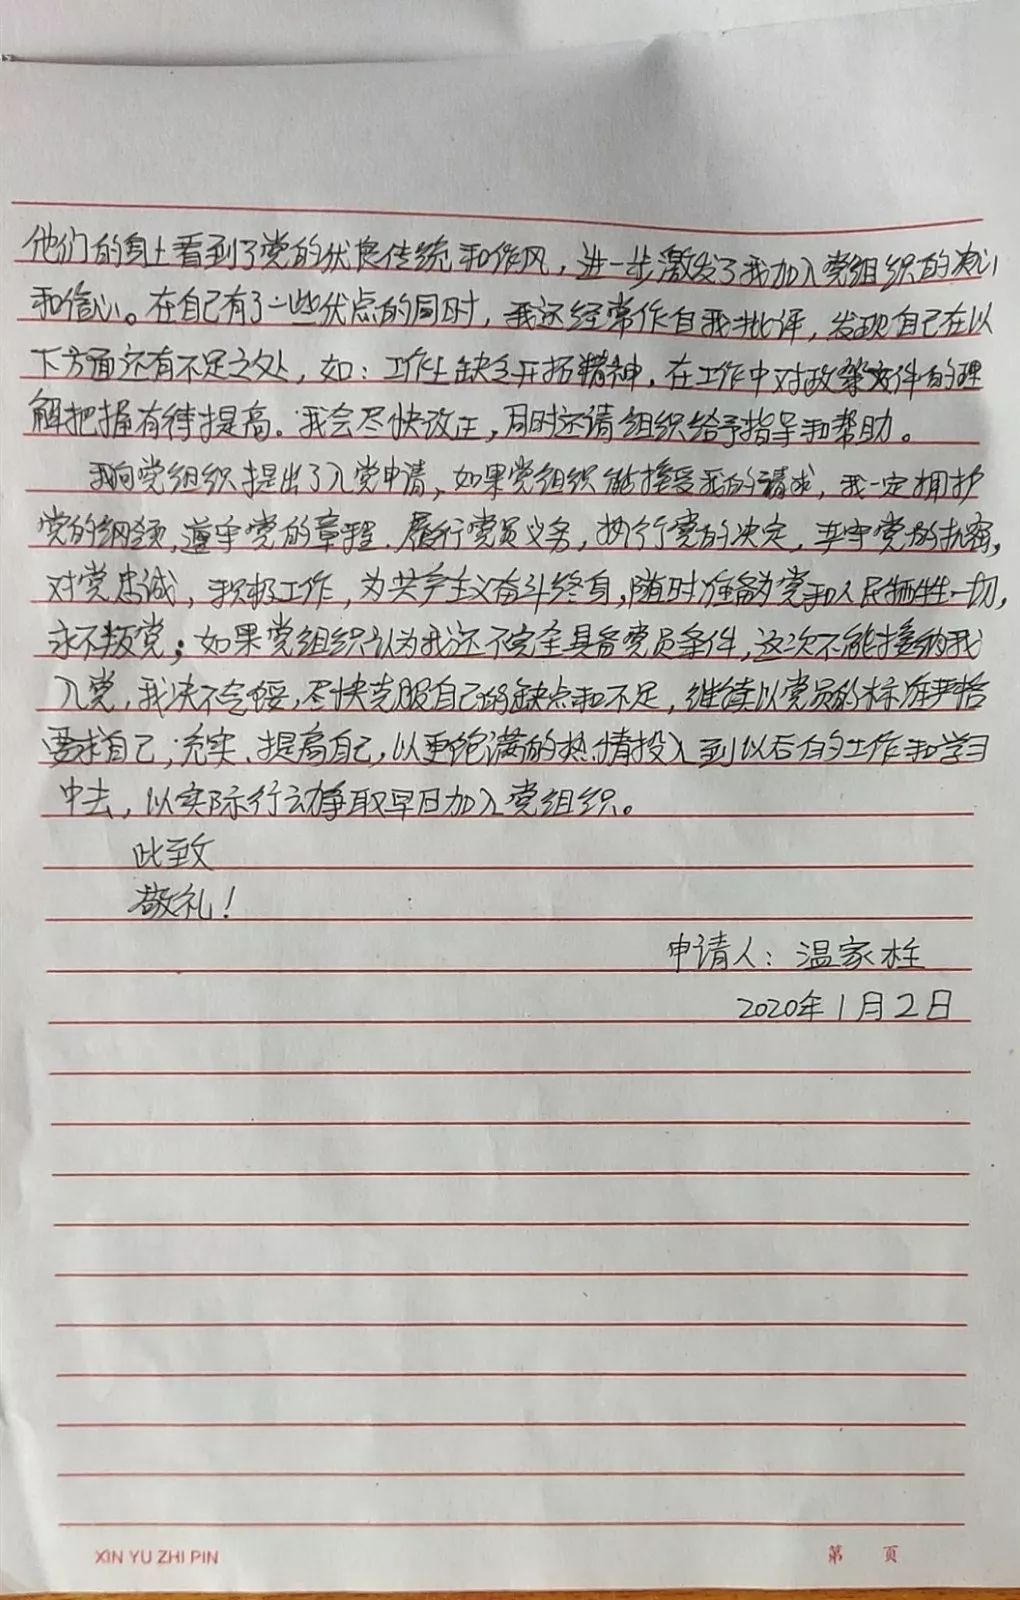 他们的身上看到了党的优良传统和作风，进一步激发了我加入党组织的决心
和信心。在自己有了一些优点的同时，我还经常作自我批评，发现自己在以
下方面还有不足之处，如：工作上缺乏开拓精神，在工作中对政策文件的理
解把握有待提高。我会尽快改正，同时还请组织给予指导和帮助。
我向党组织提出了入党申请，如果党组织能接受我的请求，我一定拥护
党的纲领，遵守党的章程，履行党员义务，执行党的决定，严守党的机密，
对党忠诚，积极工作，为共产主义奋斗终身，随时准备为党和人民牺牲一切，
永不叛党；如果党组织认为我还不完全具备党员条件，这次不能接纳我
入党，我决不气馁，尽快克服自己的缺点和不足，继续以党员的标准严格
要求自己，充实、提高自己，以更饱满的热情投入到以后的工作和学习
中去，以实际行动争取早日加入党组织。
此致
敬礼！
申请人：温家栓
2020年1月2日
XIN YU ZHI PIN
第 页